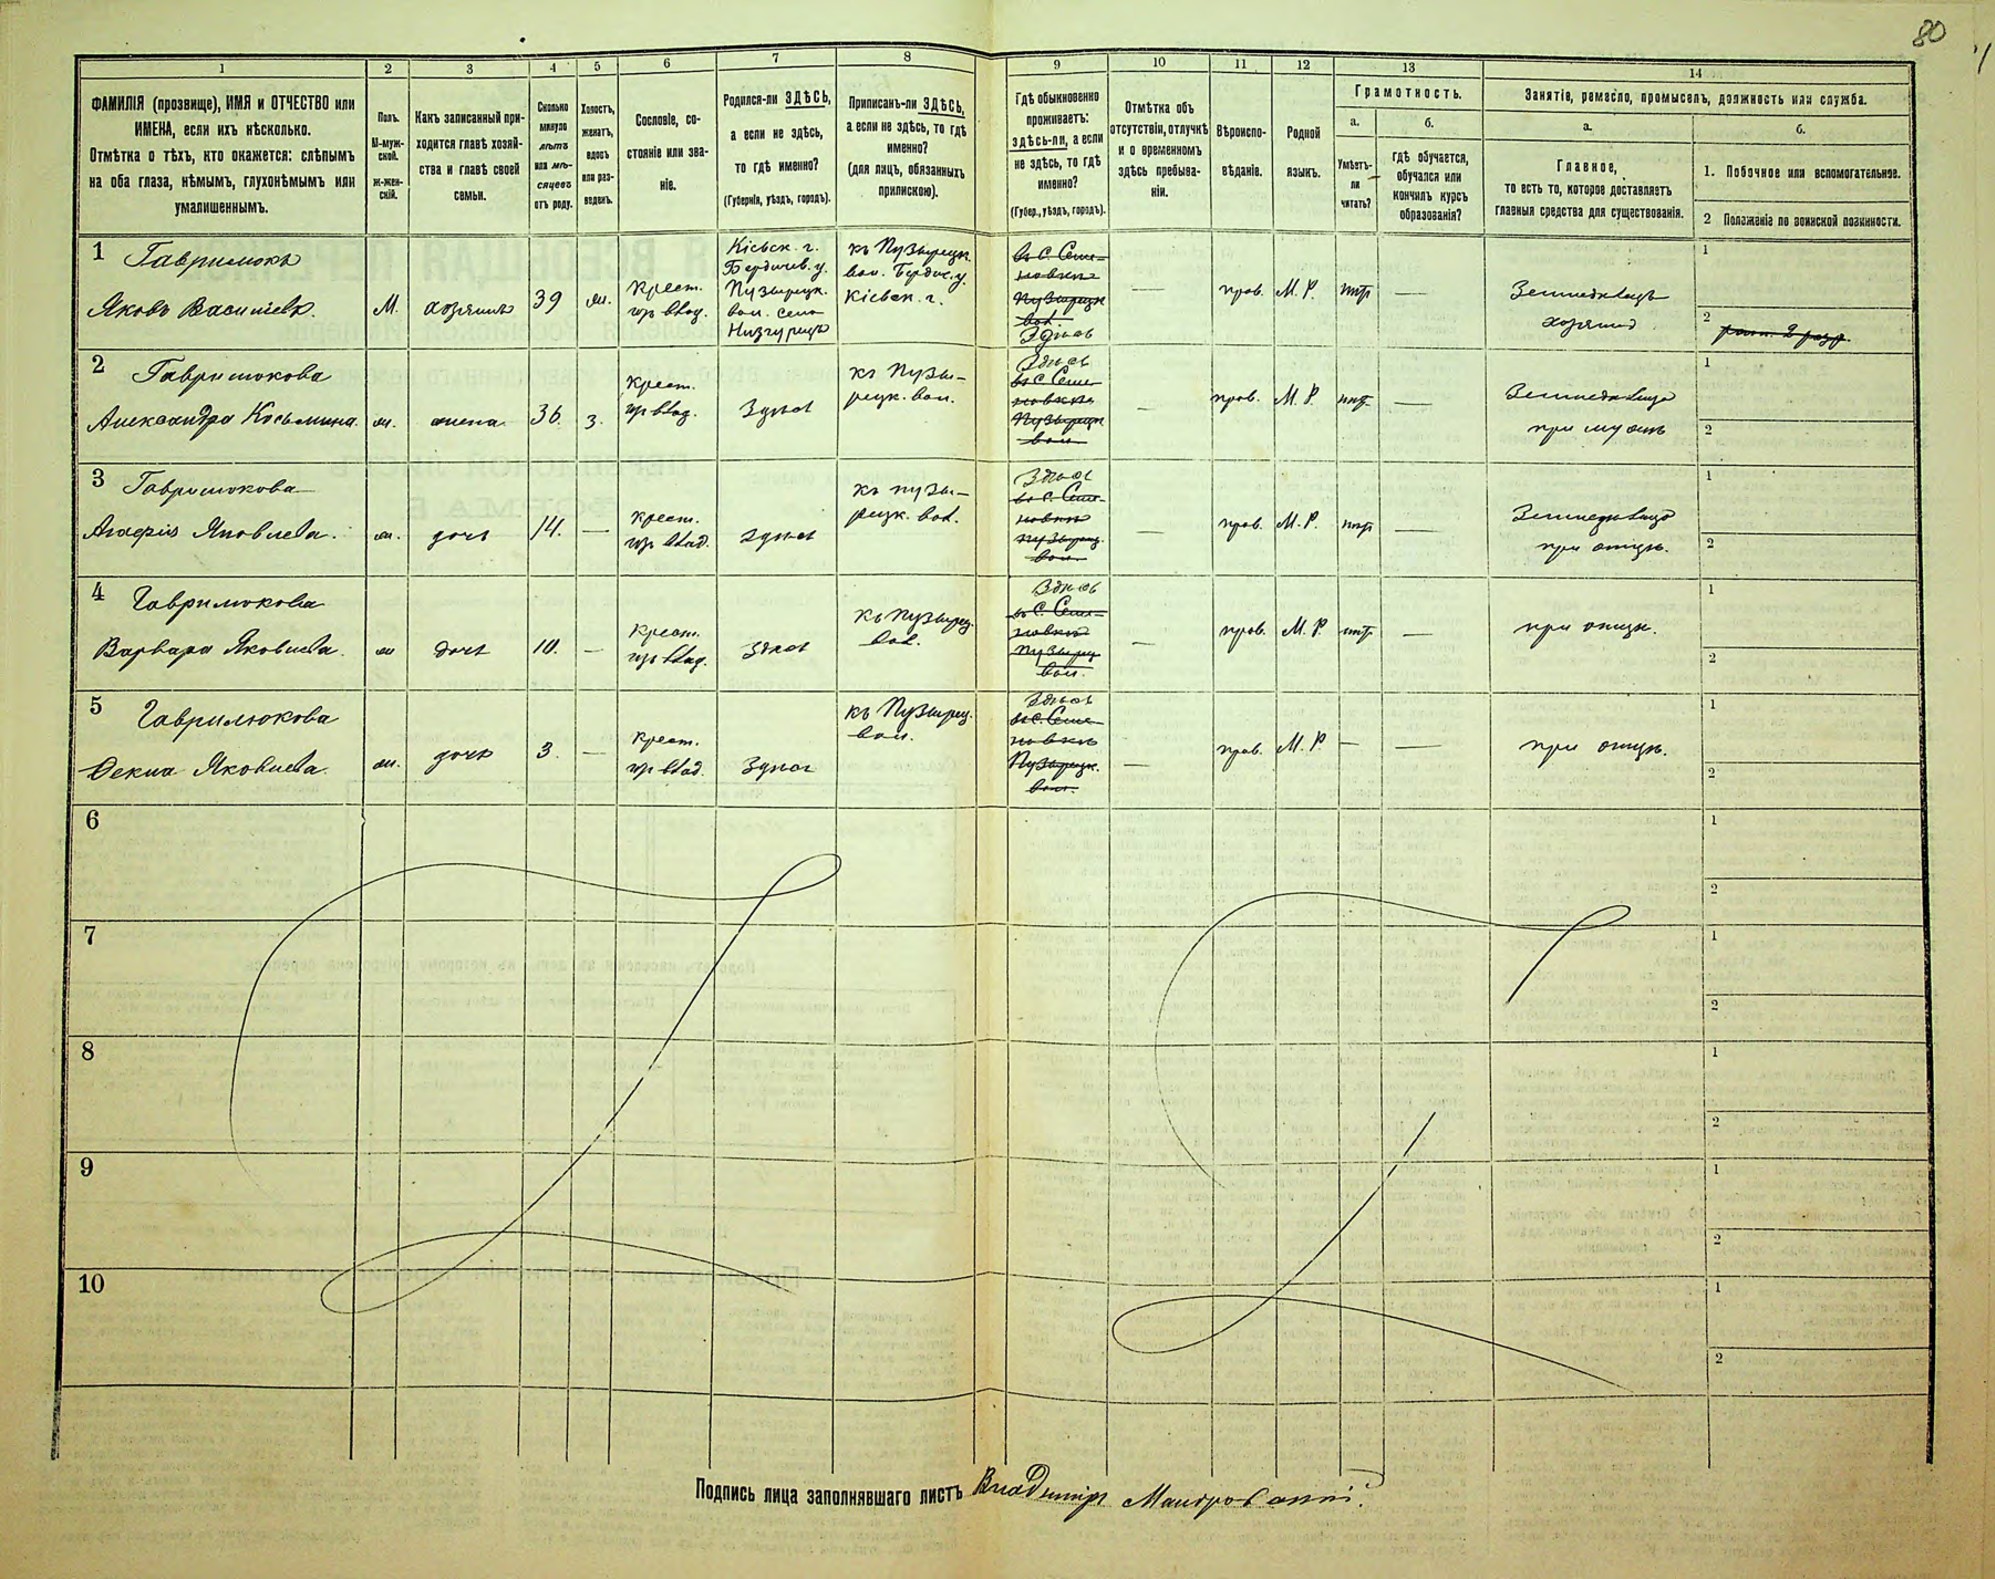 80
1 2 3 4 5 6 7 8 9 10 11 12 13 14
ФАМИЛІЯ (прозвище), ИМЯ и ОТЧЕСТВО или
ИМЕНА, если ихъ нѣсколько.
Отмѣтка о тѣхъ, кто окажется: слѣпымъ
на оба глаза, нѣмымъ, глухонѣмымъ или
умалишеннымъ.
Полъ.
М-муж-
ской.
ж-жен-
скій.
Какъ записанный при-
ходится главѣ хозяй-
ства и главѣ своей
семьи.
Сколько
минуло
лѣтъ
или мѣ-
сяцевъ
отъ роду.
Холостъ,
женатъ,
вдовъ
или раз-
веденъ.
Сословіе, со-
стояніе или зва-
ніе.
Родился-ли ЗДѢСЬ,
а если не здѣсь,
то гдѣ именно?
(Губернія, уѣздъ, городъ).
Приписанъ-ли ЗДѢСЬ,
а если не здѣсь, то гдѣ
именно?
(для лицъ, обязанныхъ
припискою).
Гдѣ обыкновенно
проживаетъ:
здѣсь-ли, а если
не здѣсь, то гдѣ
именно?
(Губер., уѣздъ, городъ).
Отмѣтка объ
отсутствіи, отлучкѣ
и о временномъ
здѣсь пребыва-
ніи.
Вѣроиспо-
вѣданіе.
Родной
языкъ.
Грамотность.
а.
Умѣетъ-
ли
читать?
б.
Гдѣ обучается,
обучался или
кончилъ курсъ
образованія?
Занятіе, ремесло, промыселъ, должность или служба.
а.
Главное,
то есть то, которое доставляетъ
главныя средства для существованія.
б.
1. Побочное или вспомогательное.
2 Положеніе по воинской повинности.
1 Гаврилюкъ
Яковъ Васильевъ.
М.
хозяинъ
39
ж.
Крест.
гр. влад.
Кіевск. г.
Бердичев. у.
Пузырецк.
вол. село
Низгурцы
къ Пузырецк.
вол. Бердич. у.
Кіевск. г.
въ с. Семе-
новкѣ
Пузырецк
вол.
Здѣсь
—
прав.
М. Р.
нѣт
—
Земледѣлецъ
хозяинъ
1
2
2 Гаврилюкова
Александра Косьмина.
ж.
жена
36.
з.
Крест.
гр. влад.
Здѣсь
къ Пузы-
рецк. вол.
Здѣсь
въ с. Семе-
новкѣ
Пузырецк
вол.
—
прав.
М. Р.
нѣт
—
Земледѣлица
при мужѣ
1
2
3 Гаврилюкова
Агафія Яковлева.
ж.
дочь
14.
—
Крест.
гр. влад.
Здѣсь
къ Пузы-
рецк. вол.
Здѣсь
въ с. Семе-
новкѣ
Пузырец.
вол.
—
прав.
М. Р.
нѣт
—
Земледѣлица
при отцѣ.
1
2
4 Гаврилюкова
Варвара Яковлева.
ж
дочь
10.
—
Крест.
гр. влад.
Здѣсь
къ Пузырец.
вол.
Здѣсь
въ с. Семе-
новкѣ
Пузырец
вол.
—
прав.
М. Р.
нѣт
—
при отцѣ.
1
2
5 Гаврилюкова
Фекла Яковлева.
ж.
дочь
3.
—
Крест.
гр. влад.
Здѣсь
къ Пузырец.
вол.
Здѣсь
въ с. Семе-
новкѣ
Пузырецк.
вол.
—
прав.
М. Р.
—
—
при отцѣ.
1
2
6
1
2
7
1
2
8
1
2
9
1
2
10
1
2
Подпись лица заполнявшаго листъ Владиміръ